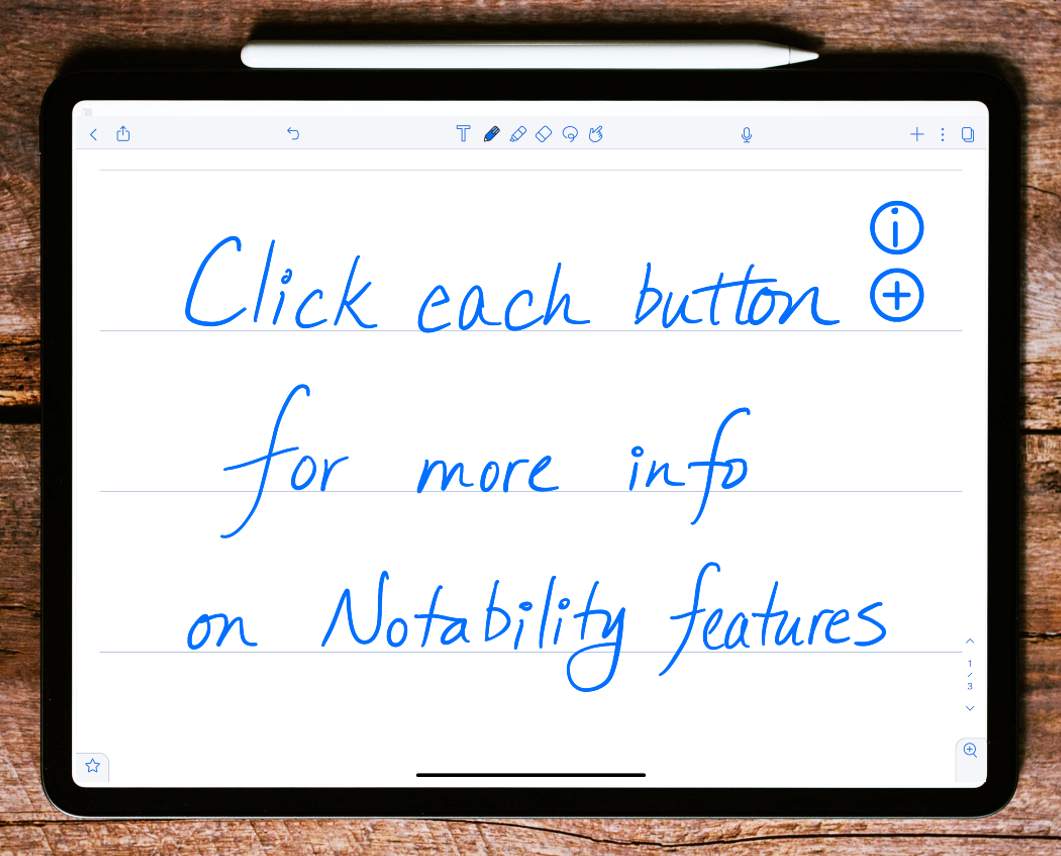 Click each button
for more info
on Notability features
T
i
+
1
/
3